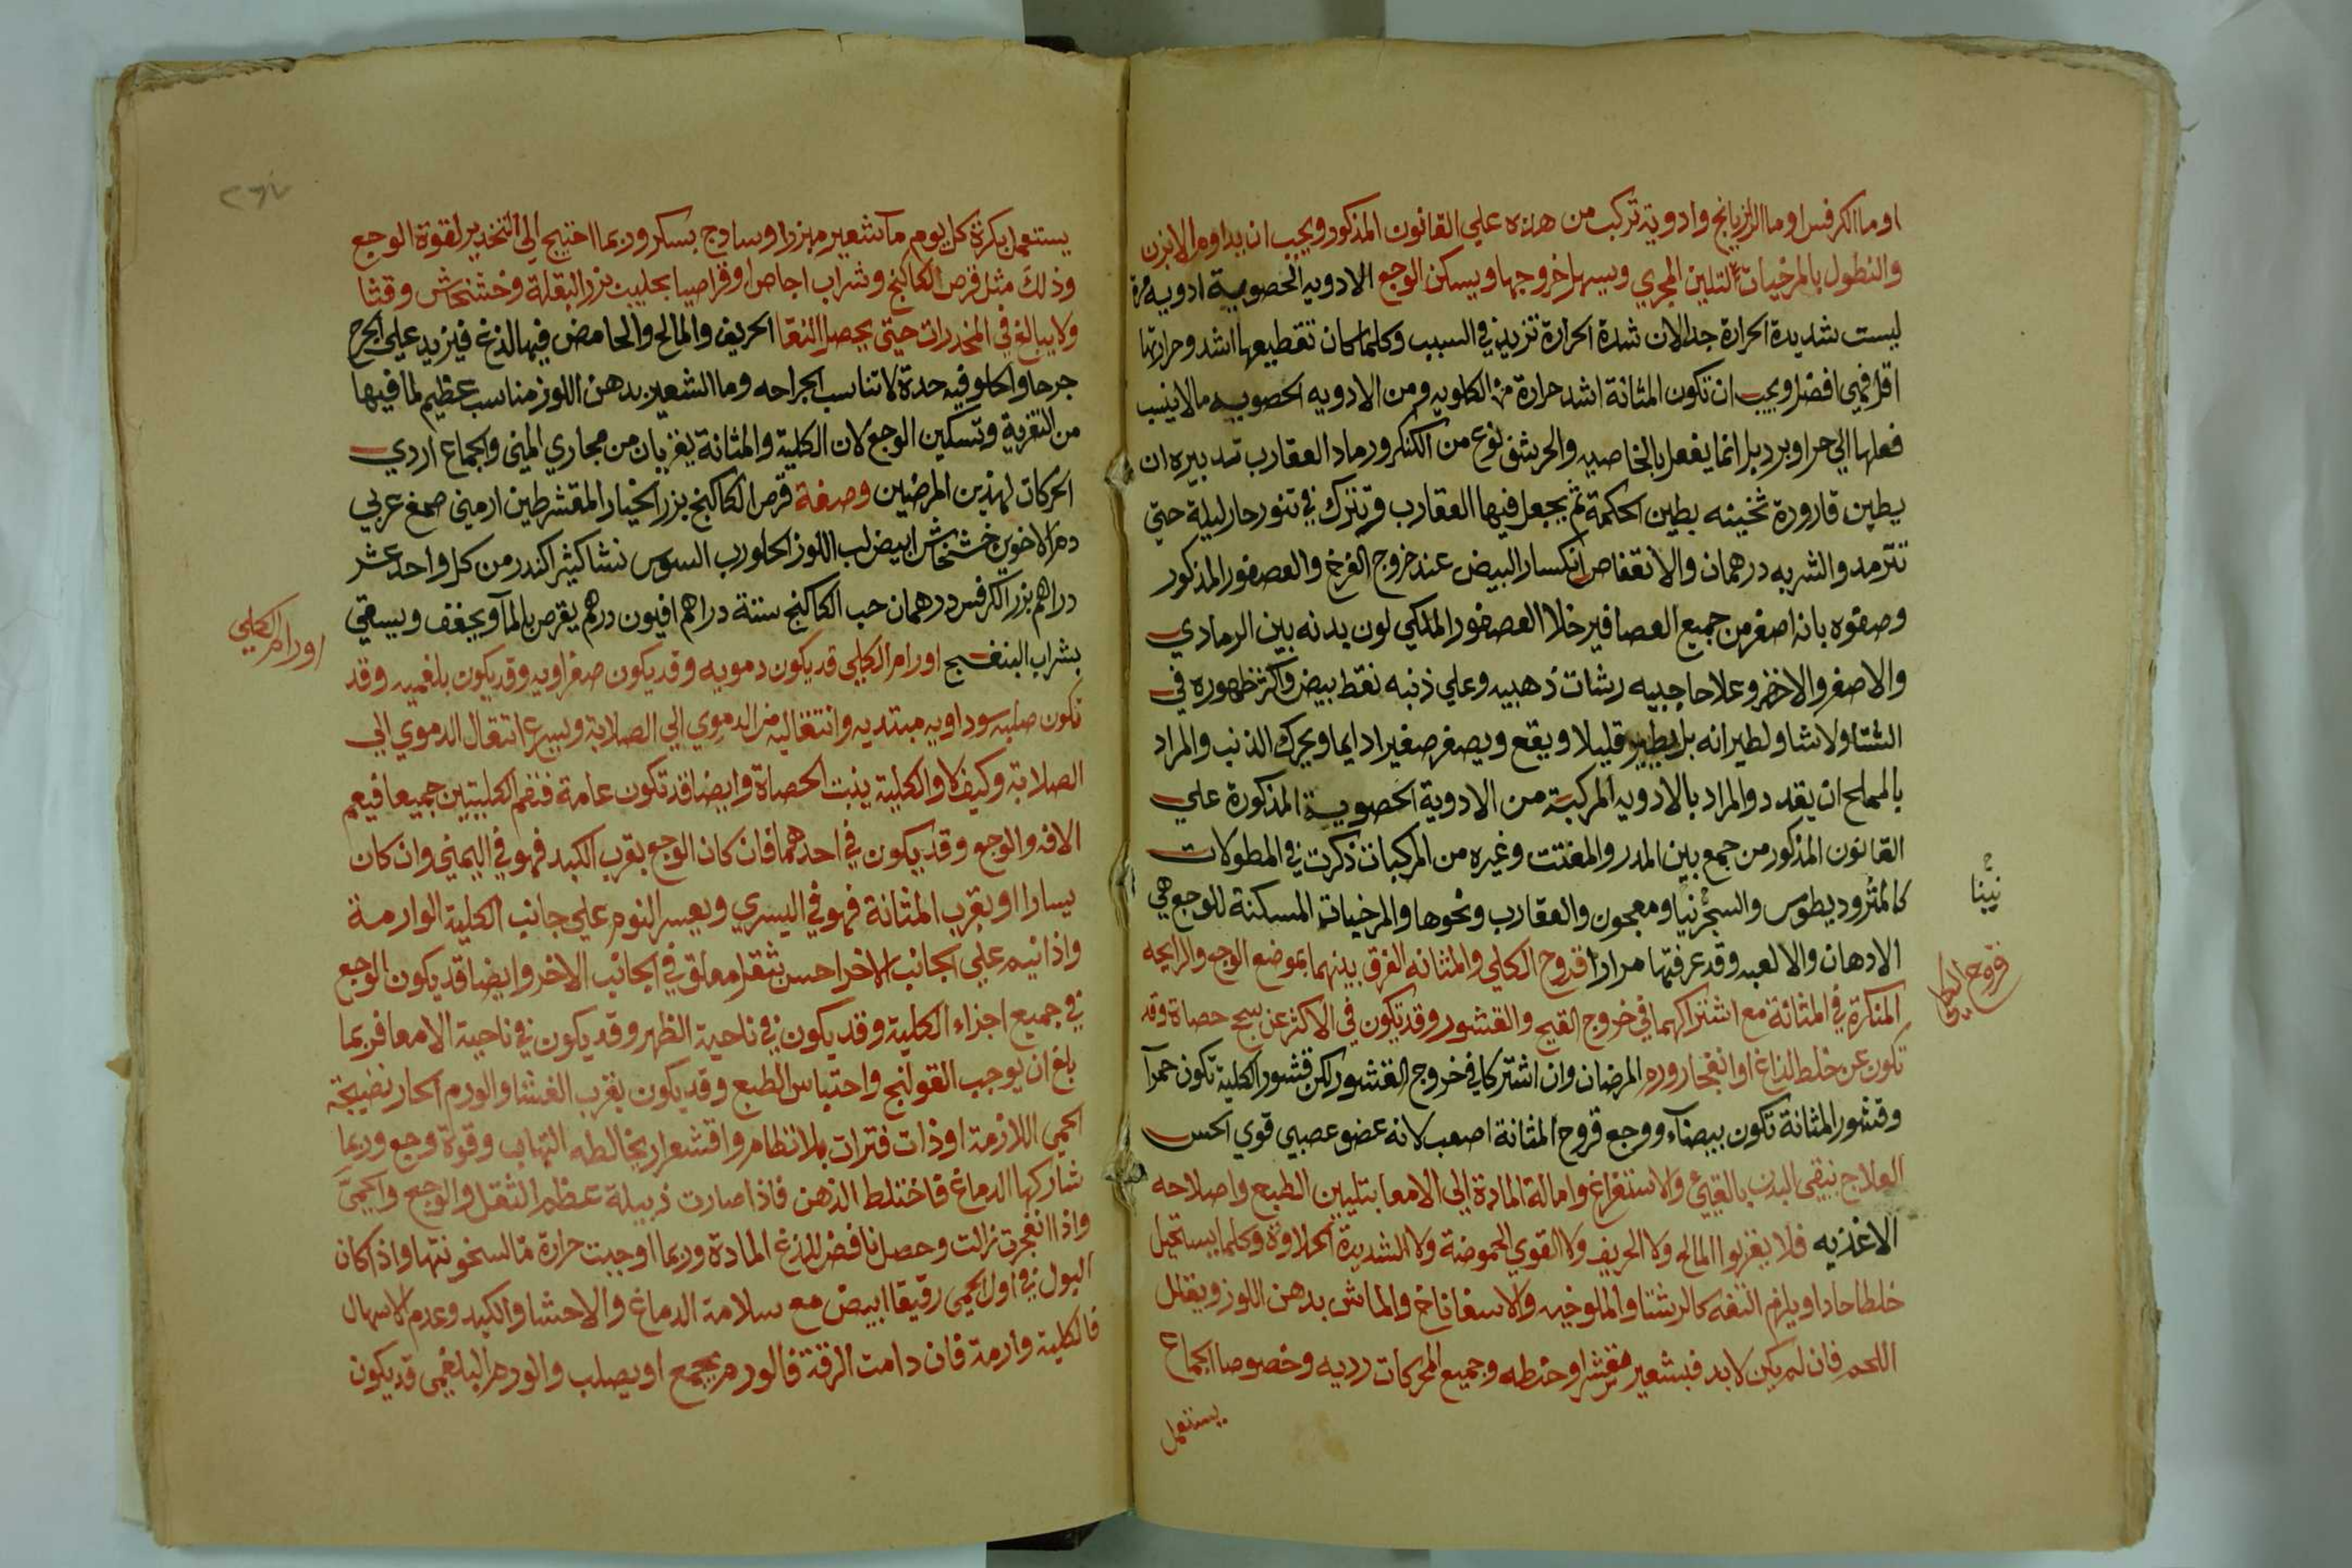 او ما الكرفس او ما الرازيانج وادوية تركبت من هذه علي القانون المذكور ويجب ان يداوم الابزن
والنطول بالمرخيات لتلين المجري ويسهل خروجها ويسكن الوجع الادويه الحصوية ادويه مرة
ليست شديدة الحرارة جدا لان شدة الحرارة تزيد في السبب وكلما كان تقطيعها اشد وحرارتها
اقل فهي افضل ويجب ان تكون المثانة اشد حرارة من الكلويه ومن الادويه الحصويه ما لا ينسب
فعلها الي حر او برد بل انما يفعل بالخاصيه والحرشف نوع من الكنكر ورماد العقارب تدبيره ان
يطين قارورة ثخينه بطين الحكمة ثم يجعل فيها العقارب وتترك في تنور حار ليلة حتي
تترمد والشربه درهمان والانقفاص انكسار البيض عند خروج الفرخ والعصفور المذكور
وصفوه بانه اصغر من جميع العصافير خلا العصفور الملكي لون بدنه بين الرمادي
والاصفر والاخضر وعلا حاجبيه ريشات ذهبيه وعلي ذنبه نقط بيض واكثر ظهوره في
الشتا ولا شاو لطيرانه بل يطير قليلا ويقع ويصفر صفيرا دايما ويحرك الذنب والمراد
بالمملح ان يقدد والمراد بالادويه المركبة من الادوية الحصوية المذكورة علي
القانون المذكور من جمع بين المدر والمفتت وغيره من المركبات ذكرت في المطولات
كالمثروديطوس والسجرنيا ومعجون والعقارب ونحوها والمرخيات المسكنة للوجع هي
نيّنا
الادهان والالعبه وقد عرفتها مرارا قروح الكلي والمثانه الفرق بينهما بموضع الوجع والرايحه
قروح الكلي
المنكرة في المثانة مع اشتراكهما في خروج القيح والقشور وقد تكون في الاكثر عن سحج حصاة وقد
تكون عن خلط لذاغ او انفجار ورم المرضان وان اشتركا في خروج القشور لكن قشور الكلية تكون حمرآ
وقشور المثانة تكون بيضآء ووجع قروح المثانة اصعب لانه عضو عصبي قوي الحس
العلاج ينقي البدن بالقيئ والاستفراغ وامالة المادة الي الامعا بتليين الطبع واصلاحه
الاغذيه فلا يقربوا المالح ولا الحريف ولا القوي الحموضة ولا الشديدة الحلاوة وكلما يستحيل
خلطا حادا ويلزم التفه كالرشتا والملوخيه والاسفاناخ والماش بدهن اللوز ويقلل
اللحم فان لم يكن لا بد فبشعير مقشر او حنطه وجميع الحركات رديه وخصوصا الجماع
يستعمل
يستعمل بكرة كل يوم مآ شعير مبزرا وسادج بسكر وربما احتيج الي التخدير لقوة الوجع
وذلك مثل قرص الكاكنج وشراب اجاص او قراصيا بحليب بزر البقلة وخشخاش وقثا
ولا يبالغ في المخدرات حتي يحصل النقا الحريف والمالح والحامض فيها لذغ فيزيد علي الجرح
جرحا والحلو فيه حدة لا تناسب الجراحه وما الشعير بدهن اللوز مناسب عظيم لما فيها
من التغرية وتسكين الوجع لان الكلية والمثانة يغزيان من مجاري المني والجماع اردي
الحركات لهذين المرضين وصفة قرص الكاكنج بزر الخيار المقشر طين ارمني صمغ عربي
دم الاخوين خشخاش ابيض لب اللوز الحلو رب السوس نشا كثيرا كندر من كل واحد عشر
دراهم بزر الكرفس درهمان حب الكاكنج ستة دراهم افيون درهم يقرص بالمآ ويجفف ويسقي
بشراب البنفسج اورام الكلي قد يكون دمويه وقد يكون صفراويه وقد يكون بلغميه وقد
اورام الكلي
تكون صلبه سوداويه مبتديه وانتقاليه من الدموي الي الصلابة ويسرع انتقال الدموي الي
الصلابة وكيف لا والكلية ينبت الحصاة وايضا قد تكون عامة فتضم الكليتين جميعا فيعم
الافه والوجع وقد يكون في احدهما فان كان الوجع بقرب الكبد فهو في اليمني وان كان
يسارا او بقرب المثانة فهو في اليسري ويعسر النوم علي جانب الكلية الوارمة
واذا نيم علي الجانب الاخر احس بثقل معلق في الجانب الاخر وايضا قد يكون الوجع
في جميع اجزاء الكلية وقد يكون في ناحية الظهر وقد يكون في ناحية الامعا فربما
بلغ ان يوجب القولنج واحتباس الطبع وقد يكون بقرب الغشا والورم الحار نضيجة
الحمي اللازمة او ذات فترات بلا نظام واقشعرار يخالطه التهاب وقوة وجع وربما
شاركها الدماغ فاختلط الذهن فاذا صارت دبيلة عظم الثقل والوجع والحميّ
واذا انفجرت زالت وحصل نافض للذغ المادة وربما اوجبت حرارة مّا لسخونتها واذا كان
البول في اول الحمي رقيقا ابيض مع سلامة الدماغ والاحشا والكبد وعدم الاسهال
فالكلية وارمة فان دامت الرقة فالورم يجمع او يصلب والورم البلغمي قد يكون